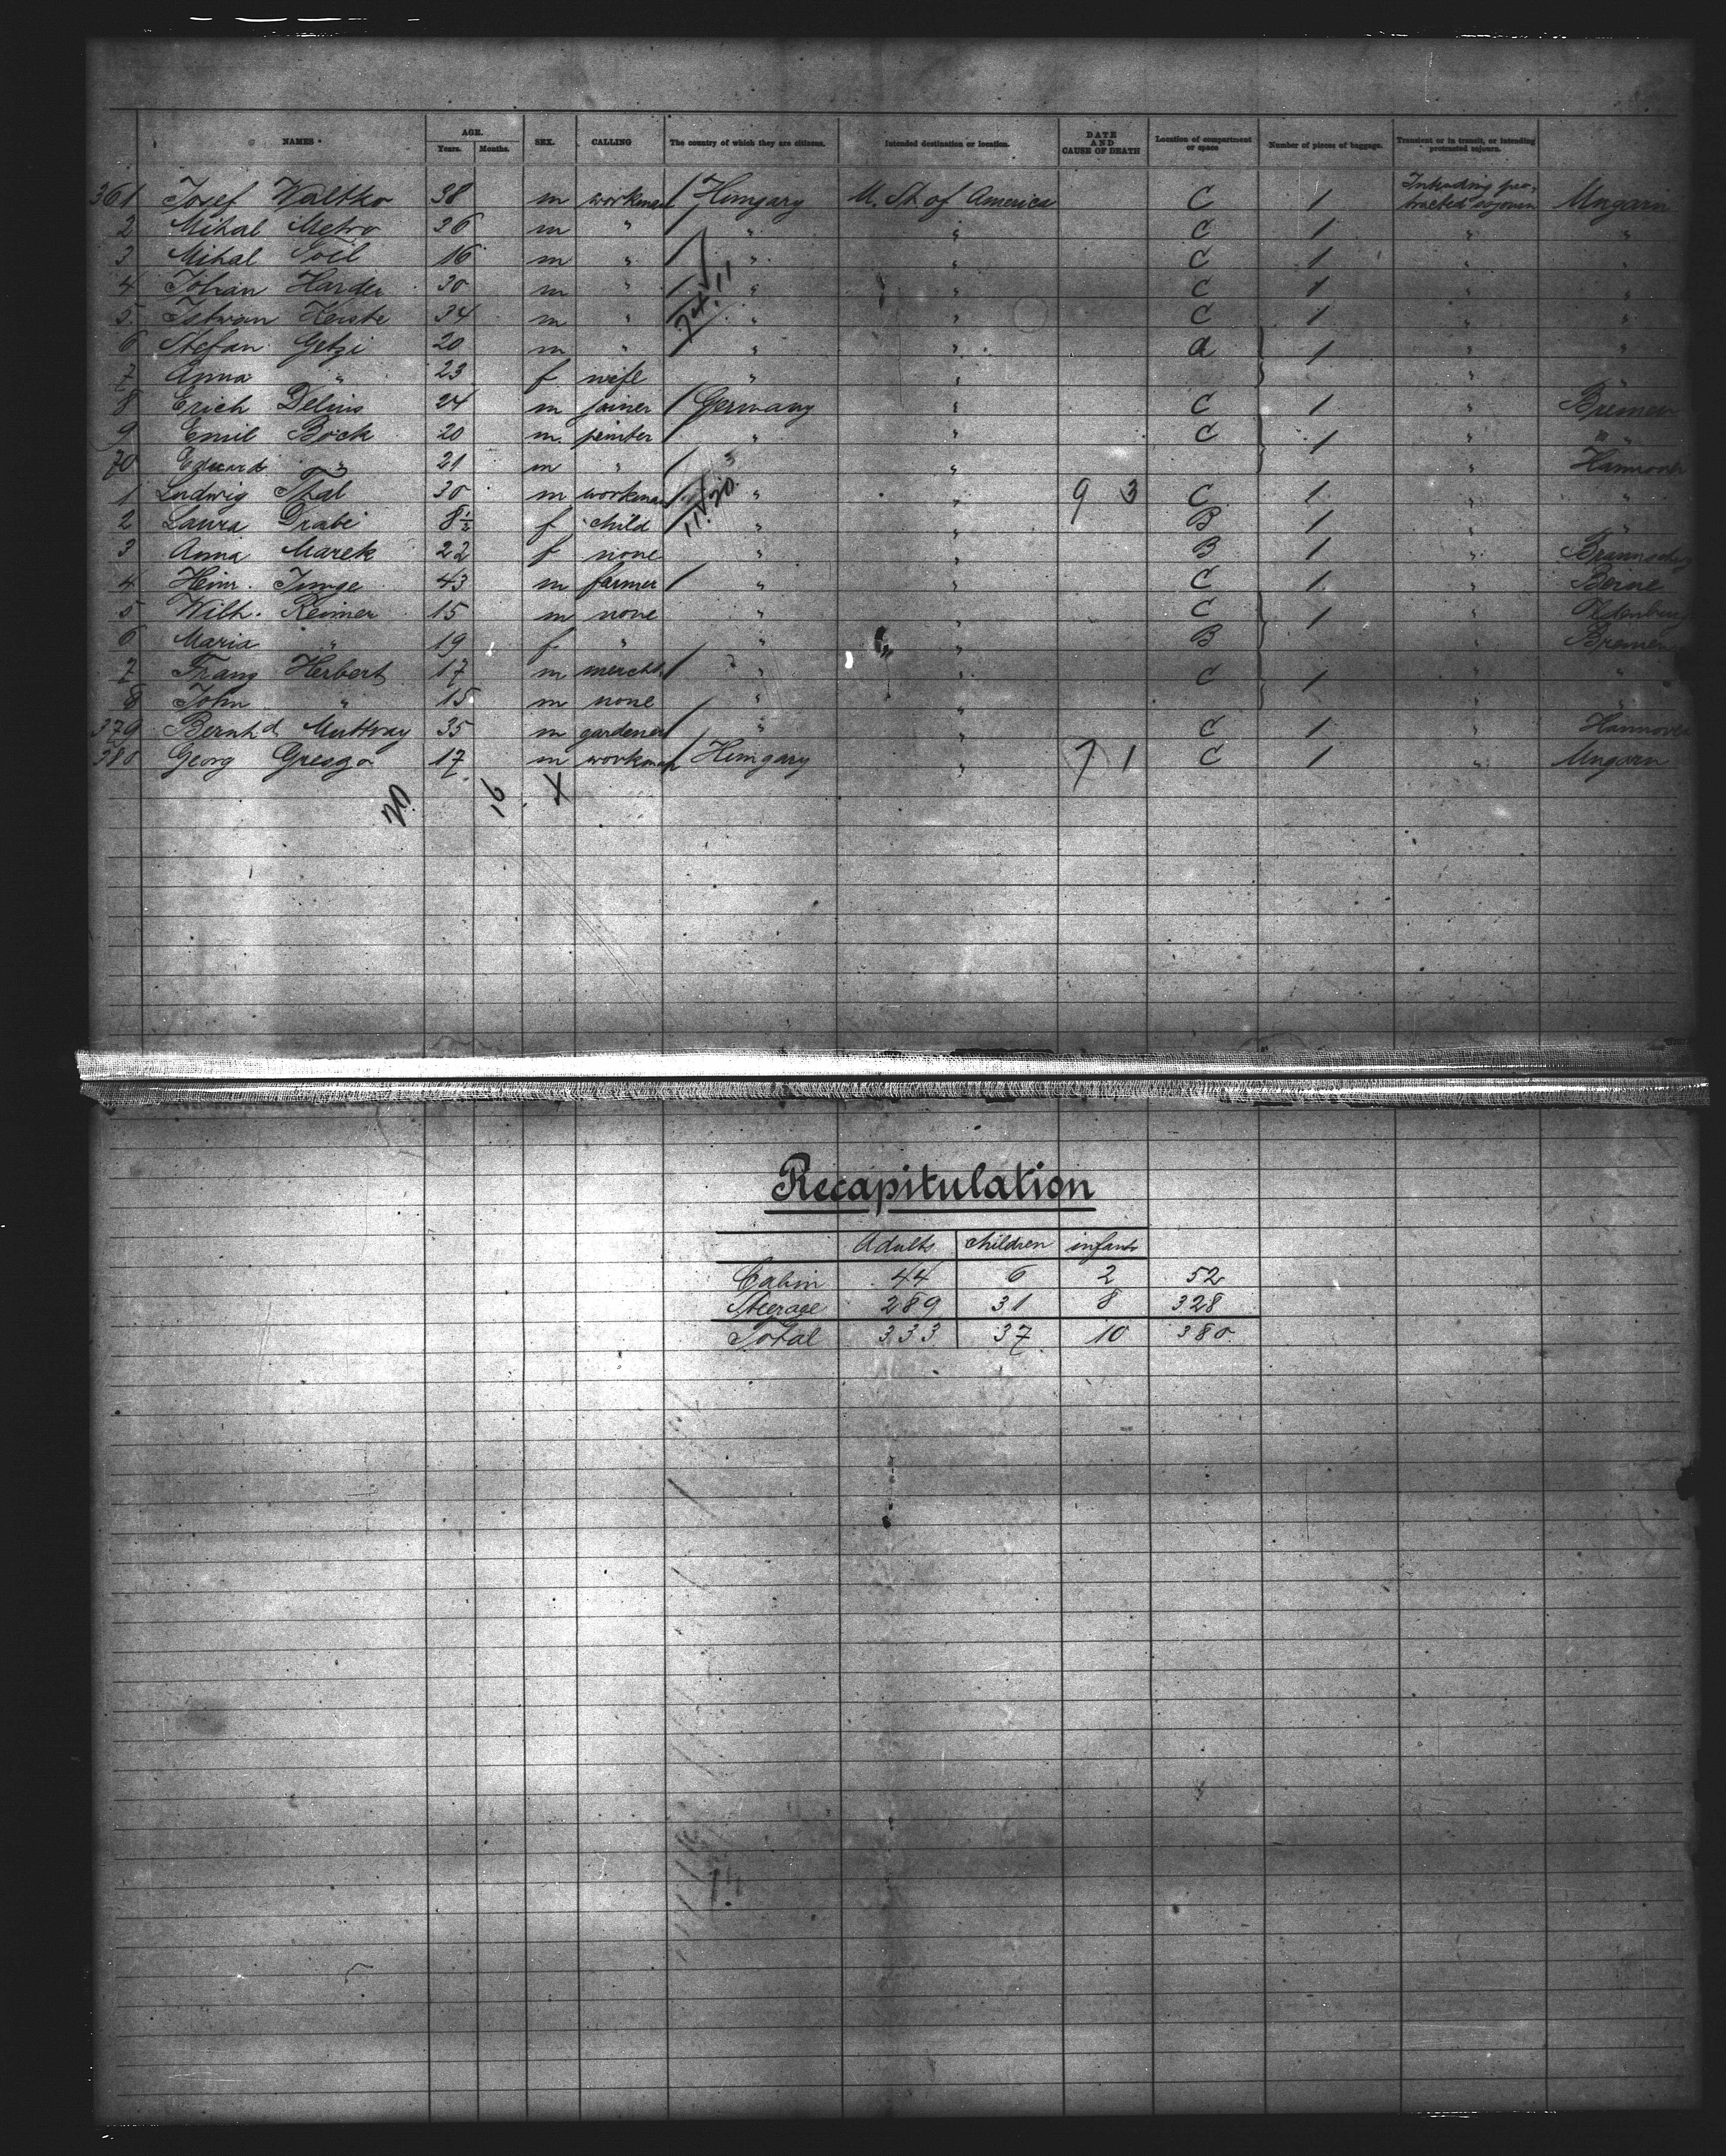 NAMES AGE. SEX. CALLING The country of which they are citizens. Intended destination or location. DATE AND CAUSE OF DEATH Location of compartment or space Number of pieces of baggage. Transient or in transit, or intending protracted sojourn.
Years. Months.
361 Josef Waltko 38 m workman Hungary U. St. of America C 1 Intending protracted sojourn Ungarn
2 Mihal Metro 36 m " " " C 1 " "
3 Mihal 16 m " " " C 1 " "
4 Johan Harder 30 m " " " C 1 " "
5 Istwan 34 m " " " C 1 " "
6 Stefan Getzi 20 m " " " a 1 " "
7 Anna " 23 f wife " " " "
8 Erich Delius 24 m joiner Germany " C 1 " Bremen
9 Emil Bock 20 m painter " " C 1 " "
70 Eduard " 21 m " " " Hannover
1 Ludwig Thal 30 m workman " " 9 3 C 1 " "
2 Laura Drabe 8½ f child " " B 1 " "
3 Anna Marek 22 f none " " B 1 " Braunschwg
4 Heinr. Junge 43 m farmer " " C 1 " Berne
5 Wilh. Reimer 15 m none " " C 1 " Oldenburg
6 Maria " 19 f " " " B " Bremen
7 Franz Herbert 17 m mercht. " " C 1 " "
8 John " 15 m none " " "
379 Bernhd. Muttray 35 m gardener " " C 1 " Hannover
380 Georg Gresgo 17 m workman Hungary " 7 1 C 1 " Ungarn
20 16 X
Recapitulation
Adults children infants
Cabin 44 6 2 52
Steerage 289 31 8 328
Total 333 37 10 380